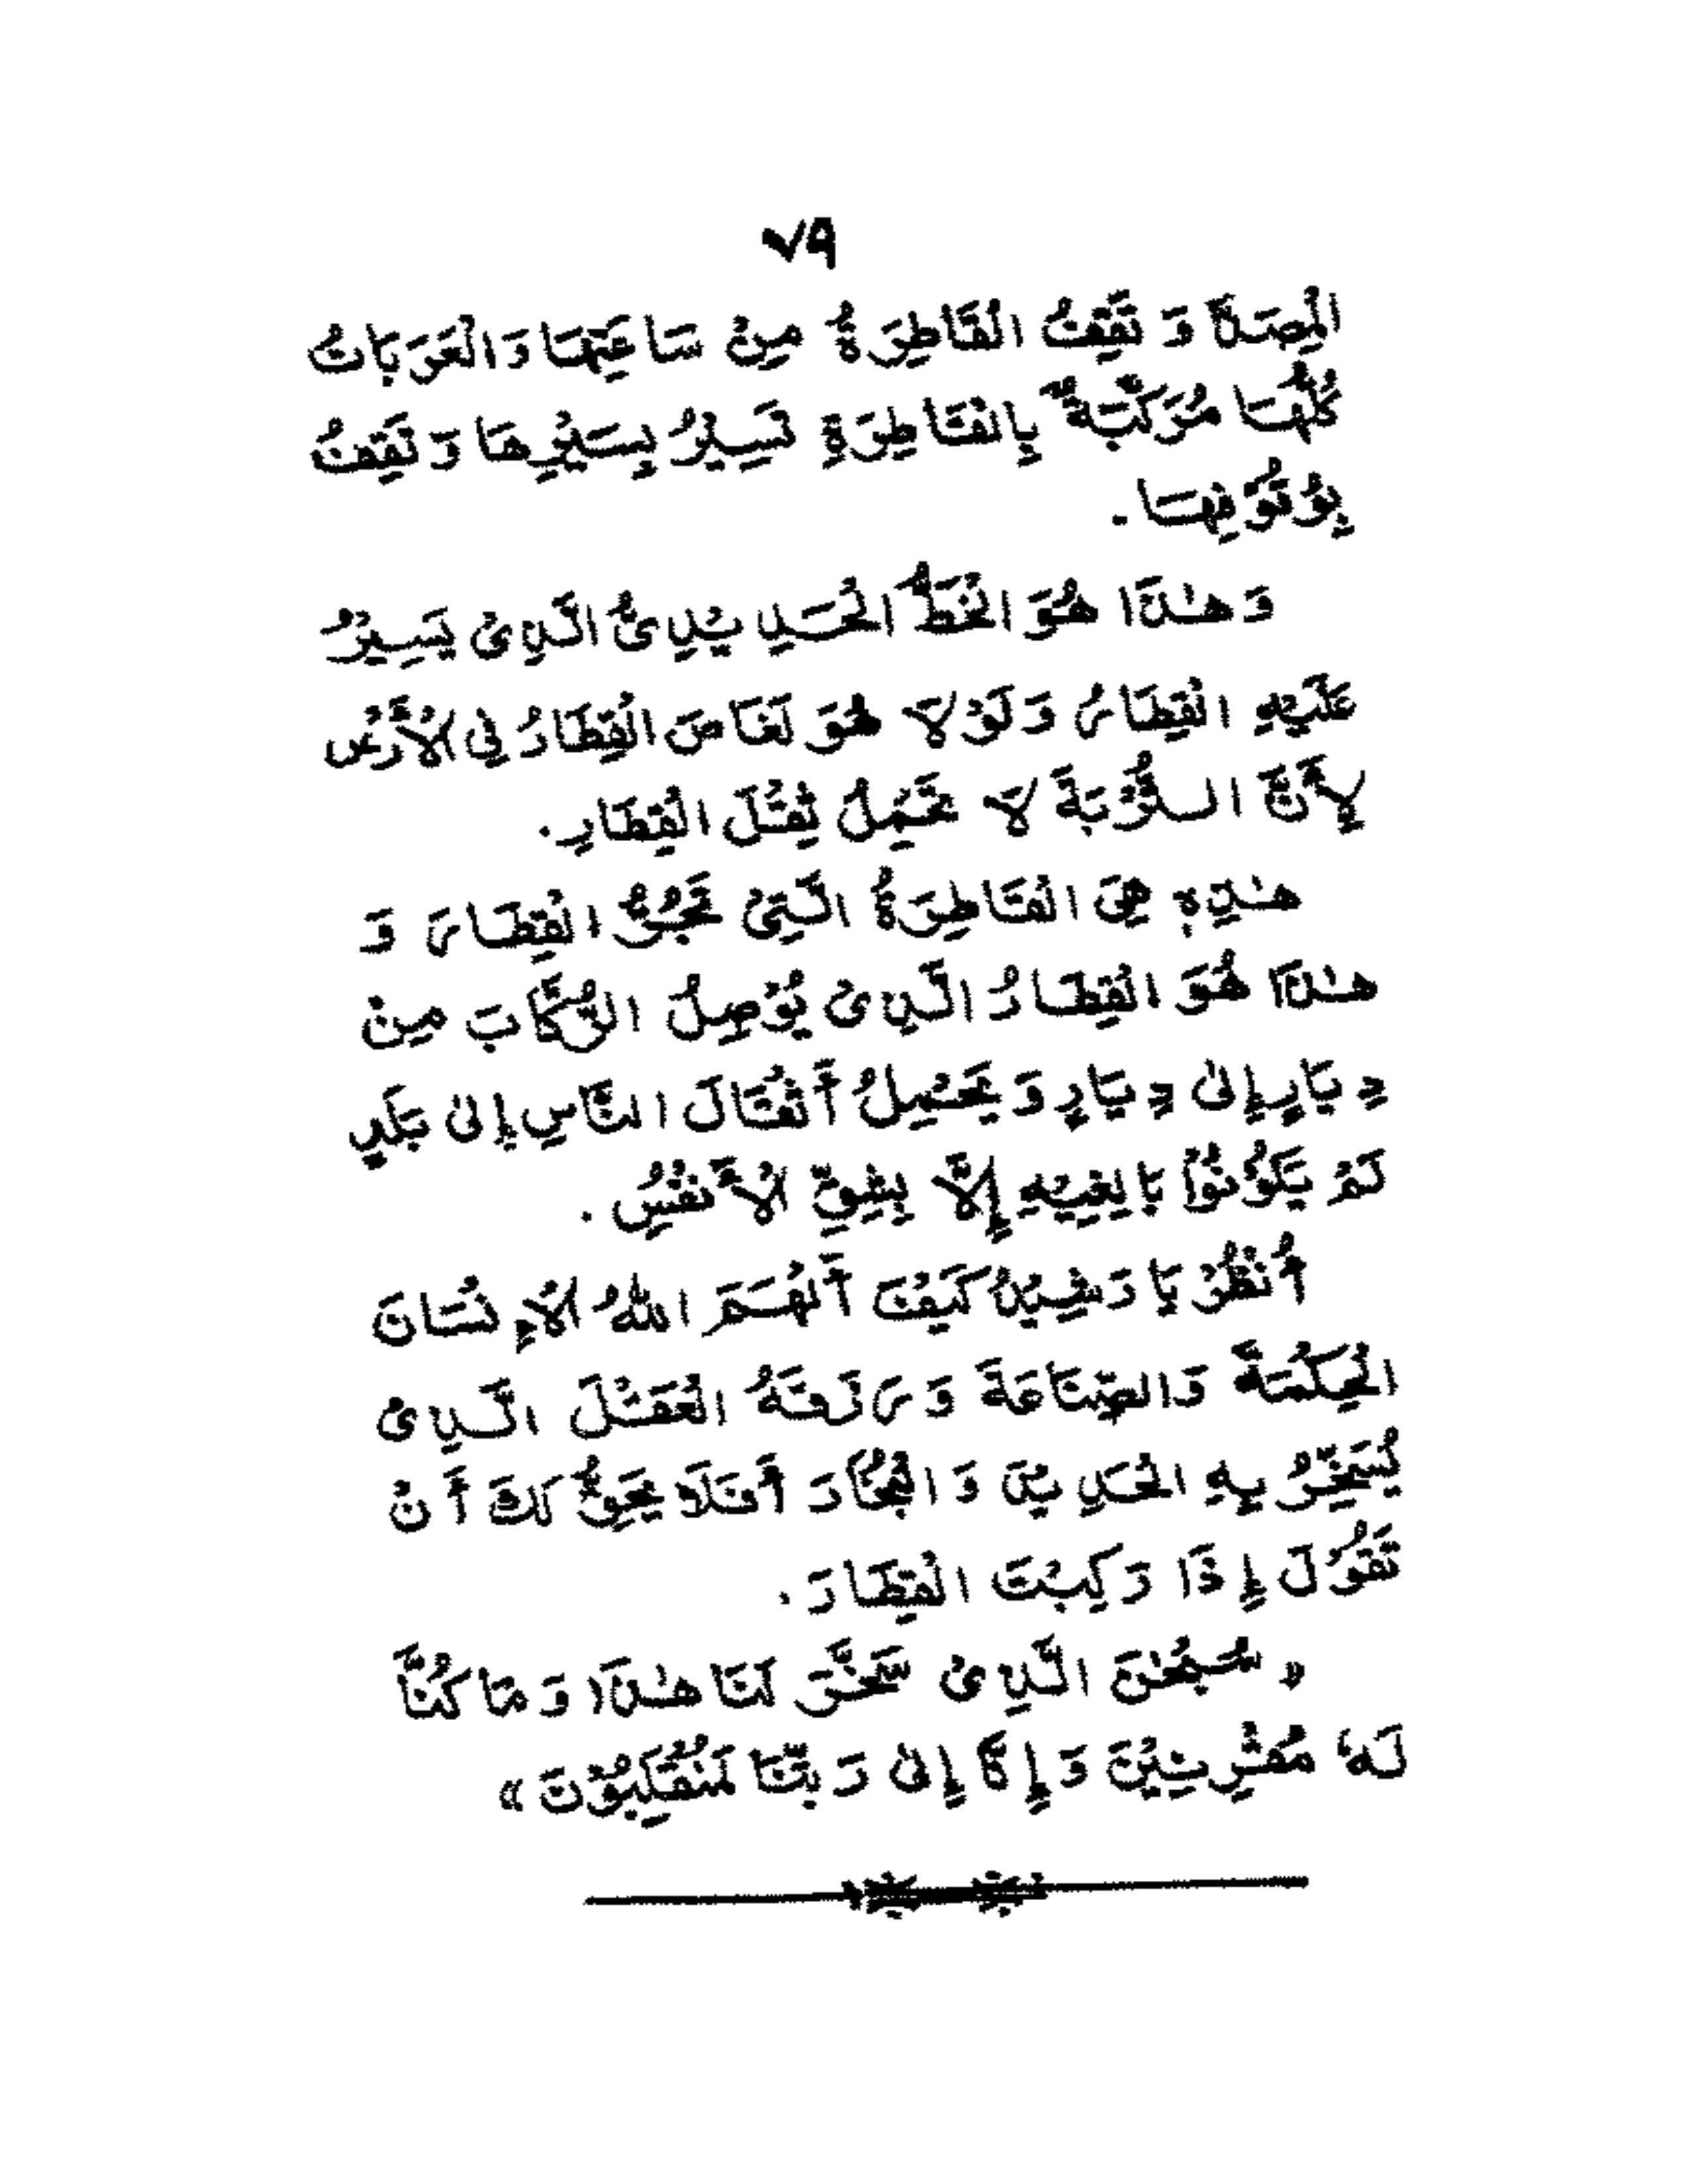 ٧٩
الْمِصَدَّةُ وَتَقِفُ الْقَاطِرَةُ مِنْ سَاعَتِهَا وَالْعَرَبَاتُ
كُلُّهَا مُرَكَّبَةٌ بِالْقَاطِرَةِ تَسِيْرُ بِسَيْرِهَا وَتَقِفُ
بِوُقُوْفِهَا.
وَهٰذَا هُوَ الْخَطُّ الْحَدِيْدِيُّ الَّذِيْ يَسِيْرُ
عَلَيْهِ الْقِطَارُ وَلَوْلَا هُوَ لَغَاصَ الْقِطَارُ فِي الْأَرْضِ
لِأَنَّ التُّرْبَةَ لَا تَحْمِلُ ثِقْلَ الْقِطَارِ.
هٰذِهِ هِيَ الْقَاطِرَةُ الَّتِيْ تَجُرُّ الْقِطَارَ وَ
هٰذَا هُوَ الْقِطَارُ الَّذِيْ يُوْصِلُ الرُّكَّابَ مِنْ
دِيَارٍ إِلىٰ دِيَارٍ وَيَحْمِلُ أَثْقَالَ النَّاسِ إِلىٰ بَلَدٍ
لَمْ يَكُوْنُوْا بَالِغِيْهِ إِلَّا بِشِقِّ الْأَنْفُسِ.
أُنْظُرْ يَا رَشِيْدُ كَيْفَ أَلْهَمَ اللهُ الْإِنْسَانَ
الْحِكْمَةَ وَالصِّنَاعَةَ وَرَزَقَهُ الْعَقْلَ الَّذِيْ
يُسَخِّرُ بِهِ الْحَدِيْدَ وَالْبُخَارَ أَفَلَا يَحِقُّ لَكَ أَنْ
تَقُوْلَ إِذَا رَكِبْتَ الْقِطَارَ.
« سُبْحٰنَ الَّذِيْ سَخَّرَ لَنَا هٰذَا وَمَا كُنَّا
لَهٗ مُقْرِنِيْنَ وَإِنَّا إِلىٰ رَبِّنَا لَمُنْقَلِبُوْنَ »